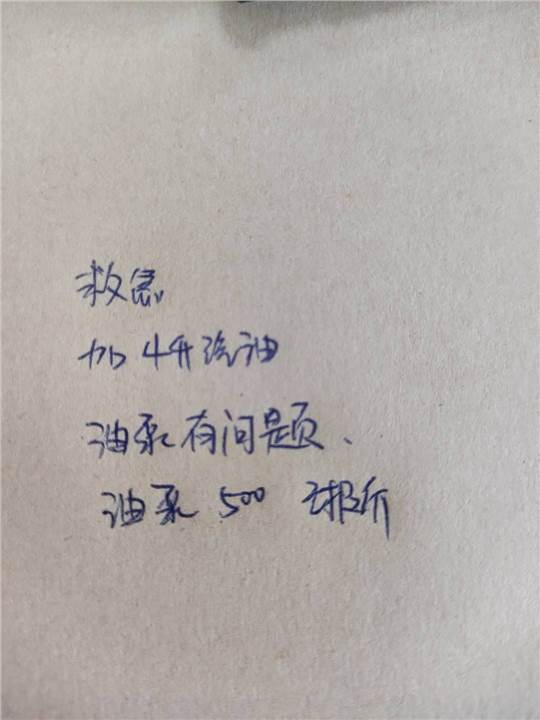 救急
加4升汽油
油泵有问题、
油泵 500 已报价